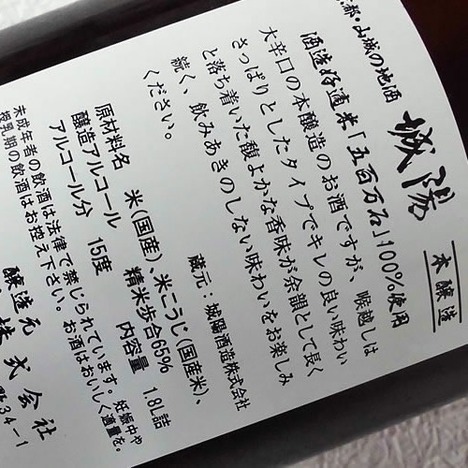 都・山城の地酒
城陽
本醸造
酒造好適米「五百万石」100%使用
大辛口の本醸造のお酒ですが、喉越しは
さっぱりとしたタイプでキレの良い味わい
と落ち着いた馥よかな香味が余韻として長く
続く、飲みあきのしない味わいをお楽しみ
ください。
蔵元:城陽酒造株式会社
原材料名 米(国産)、米こうじ(国産米)、
醸造アルコール 精米歩合65%
アルコール分 15度 内容量 1.8L詰
未成年者の飲酒は法律で禁じられています。妊娠中や
授乳期の飲酒はお控え下さい。お酒はおいしく適量を。
醸造元
株式会社
34-1